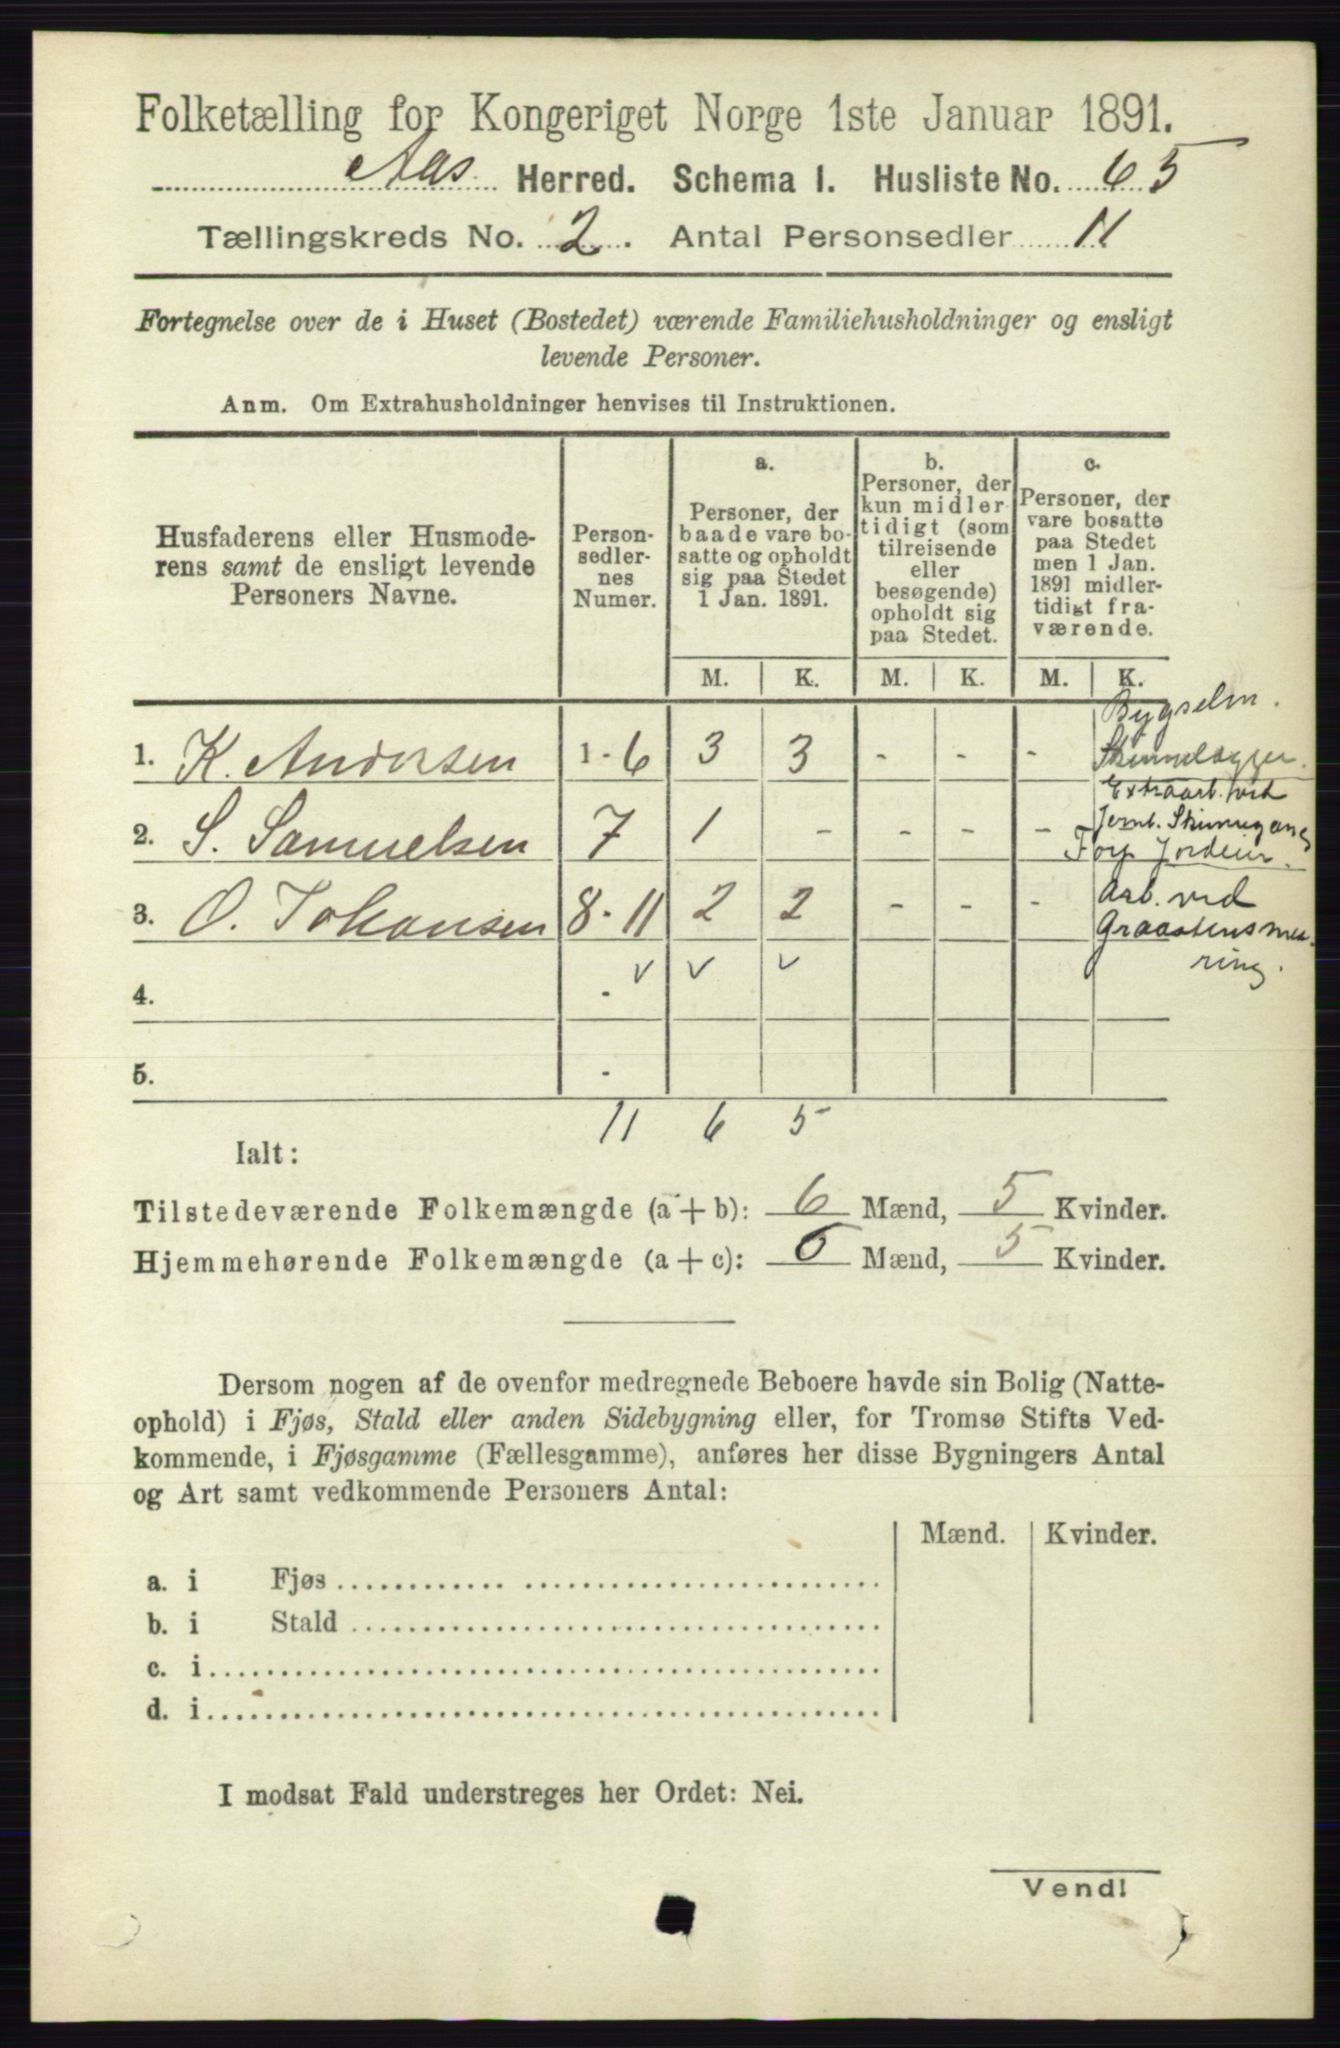 Folketælling for Kongeriget Norge 1ste Januar 1891.
Aas Herred. Schema I. Husliste No. 65
Tællingskreds No. 2. Antal Personsedler 11
Fortegnelse over de i Huset (Bostedet) værende Familiehusholdninger og ensligt
levende Personer.
Anm. Om Extrahusholdninger henvises til Instruktionen.
Husfaderens eller Husmode-
rens samt de ensligt levende
Personers Navne.
Person-
sedler-
nes
Numer.
a.
Personer, der
baade vare bo-
satte og opholdt
sig paa Stedet
1 Jan. 1891.
b.
Personer, der
kun midler-
tidigt (som
tilreisende
eller
besøgende)
opholdt sig
paa Stedet.
c.
Personer, der
vare bosatte
paa Stedet
men 1 Jan.
1891 midler-
tidigt fra-
værende.
M. K. M. K. M. K.
Bygselm.
1. K. Andersen 1-6 3 3 - - - Skinnelægger.
Extraarb. ved
2. S. Samuelsen 7 1 - - - - Jernb. Skinnegang
Jordeier.
3. O. Johansen 8-11 2 2 - - - Arb. ved
Graastensmu-
ring.
v v v
4. -
5. -
11 6 5
Ialt:
Tilstedeværende Folkemængde (a + b): 6 Mænd, 5 Kvinder.
Hjemmehørende Folkemængde (a + c): 6 Mænd, 5 Kvinder.
Dersom nogen af de ovenfor medregnede Beboere havde sin Bolig (Natte-
ophold) i Fjøs, Stald eller anden Sidebygning eller, for Tromsø Stifts Ved-
kommende, i Fjøsgamme (Fællesgamme), anføres her disse Bygningers Antal
og Art samt vedkommende Personers Antal:
Mænd. Kvinder.
a. i Fjøs
b. i Stald
c. i
d. i
I modsat Fald understreges her Ordet: Nei.
Vend!